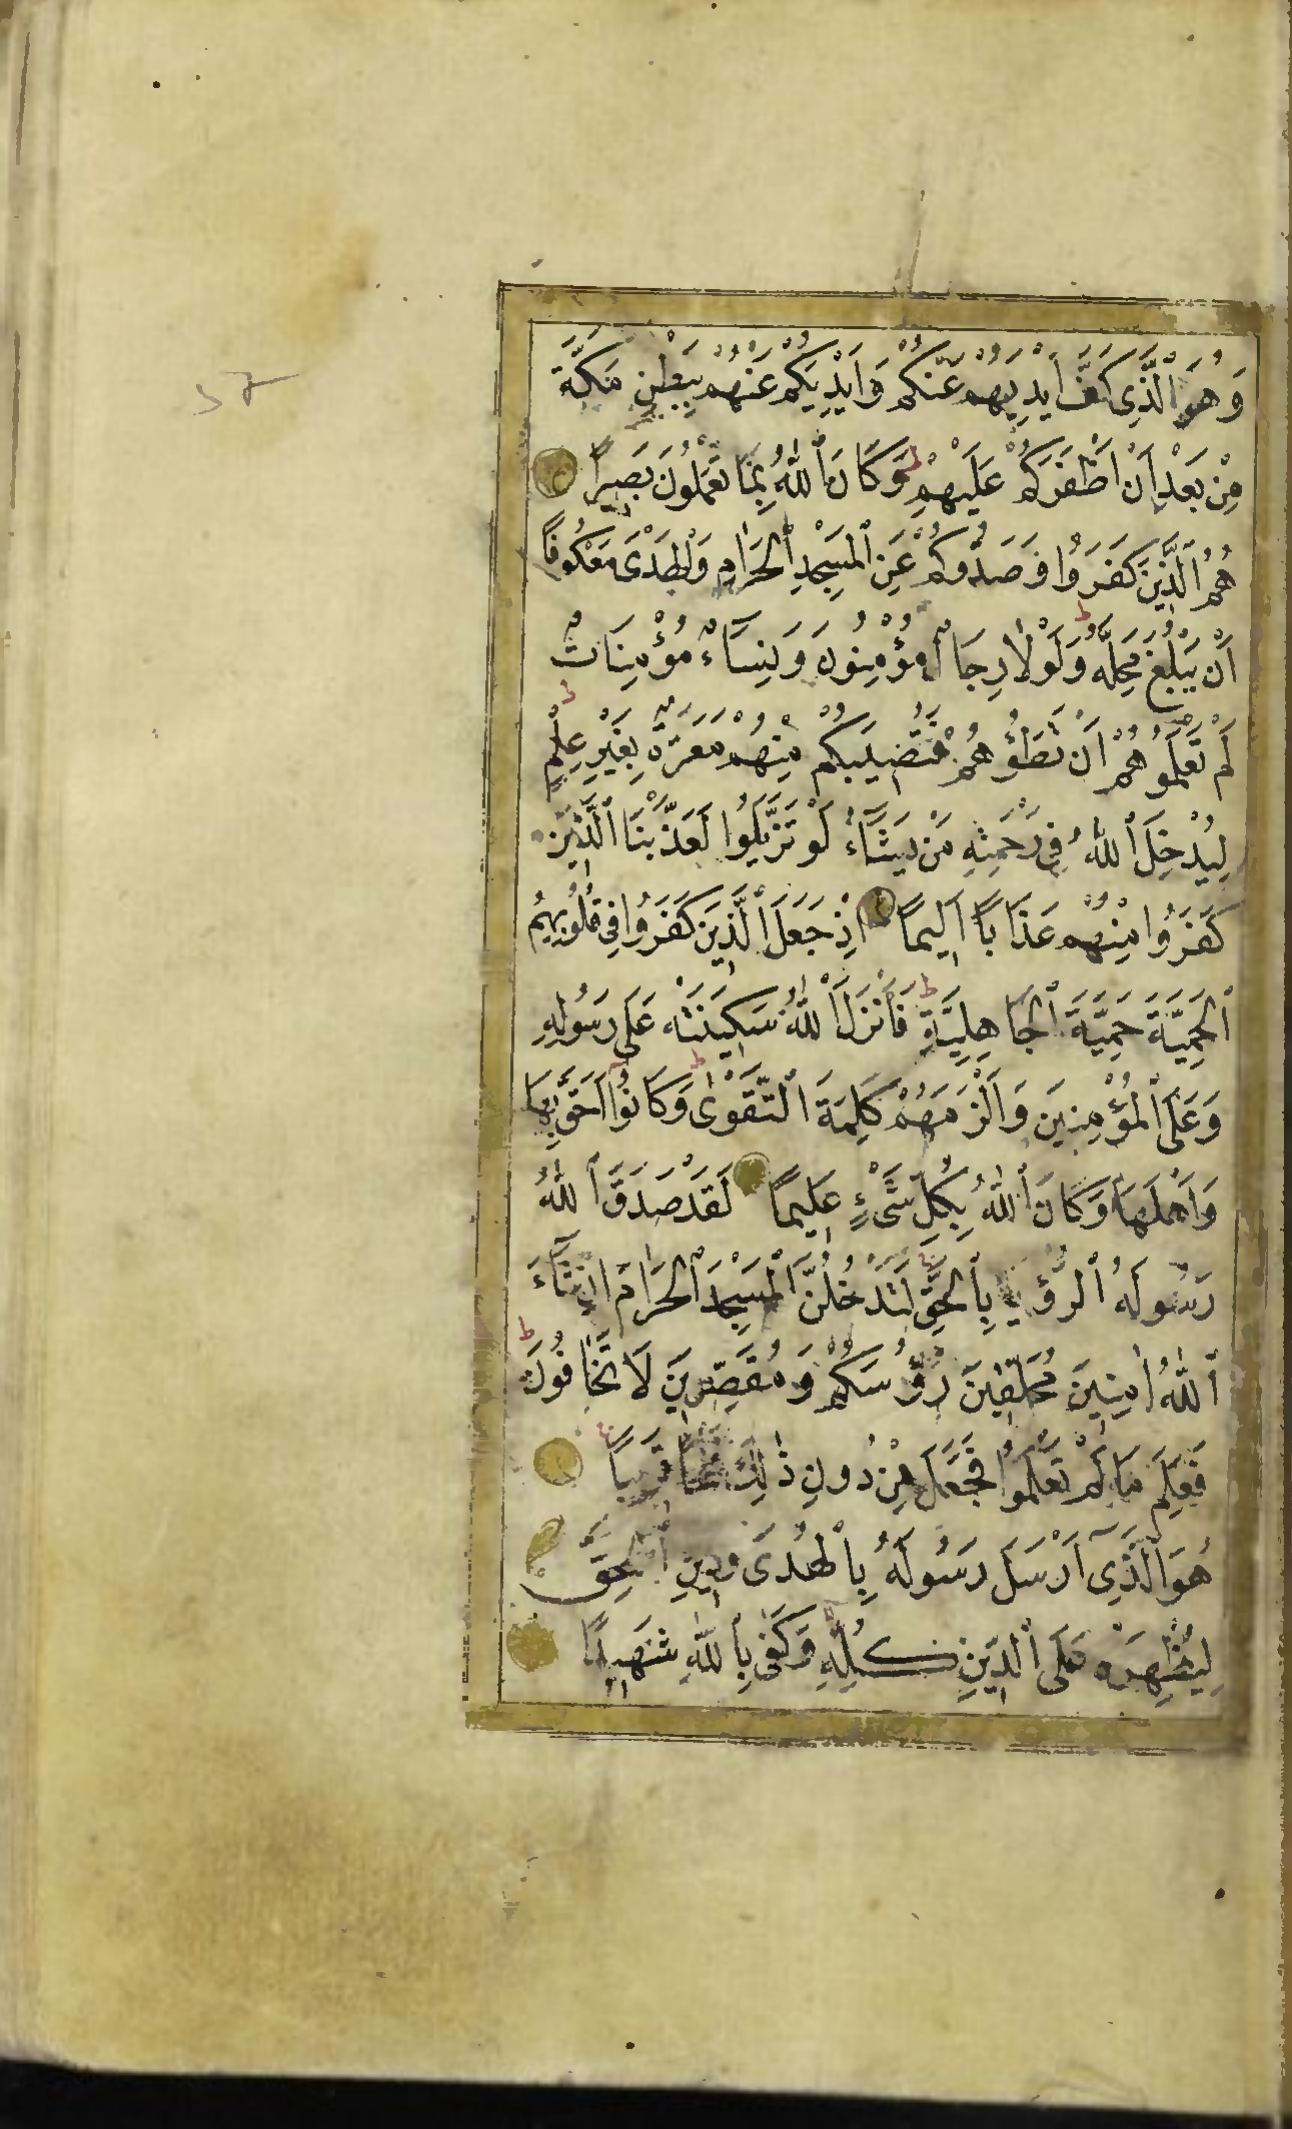 وَهُوَ ٱلَّذِى كَفَّ اَيْدِيَهُمْ عَنْكُمْ وَاَيْدِيَكُمْ عَنْهُمْ بِبَطْنِ مَكَّةَ
مِنْ بَعْدِ اَنْ اَظْفَرَكُمْ عَلَيْهِمْ ط وَكَانَ ٱللّٰهُ بِمَا تَعْمَلُونَ بَصِيرًا
هُمُ ٱلَّذِينَ كَفَرُوا وَصَدُّوكُمْ عَنِ ٱلْمَسْجِدِ ٱلْحَرَامِ وَٱلْهَدْىَ مَعْكُوفًا
اَنْ يَبْلُغَ مَحِلَّهُ ط وَلَوْلَا رِجَالٌ مُؤْمِنُونَ وَنِسَآءٌ مُؤْمِنَاتٌ
لَمْ تَعْلَمُوهُمْ اَنْ تَطَؤُهُمْ فَتُصِيبَكُمْ مِنْهُمْ مَعَرَّةٌ بِغَيْرِ عِلْمٍ ط
لِيُدْخِلَ ٱللّٰهُ فِى رَحْمَتِهِ مَنْ يَشَآءُ لَوْ تَزَيَّلُوا لَعَذَّبْنَا ٱلَّذِينَ
كَفَرُوا مِنْهُمْ عَذَابًا اَلِيمًا اِذْ جَعَلَ ٱلَّذِينَ كَفَرُوا فِى قُلُوبِهِمُ
ٱلْحَمِيَّةَ حَمِيَّةَ ٱلْجَاهِلِيَّةِ ط فَأَنْزَلَ ٱللّٰهُ سَكِينَتَهُ عَلَى رَسُولِهِ
وَعَلَى ٱلْمُؤْمِنِينَ وَاَلْزَمَهُمْ كَلِمَةَ ٱلتَّقْوٰى ط وَكَانُوا اَحَقَّ بِهَا
وَاَهْلَهَا وَكَانَ ٱللّٰهُ بِكُلِّ شَىْءٍ عَلِيمًا لَقَدْ صَدَقَ ٱللّٰهُ
رَسُولَهُ ٱلرُّؤْيَا بِٱلْحَقِّ لَتَدْخُلُنَّ ٱلْمَسْجِدَ ٱلْحَرَامَ اِنْ شَآءَ
ٱللّٰهُ اٰمِنِينَ مُحَلِّقِينَ رُؤُسَكُمْ وَمُقَصِّرِينَ لَا تَخَافُونَ ط
فَعَلِمَ مَا لَمْ تَعْلَمُوا فَجَعَلَ مِنْ دُونِ ذٰلِكَ فَتْحًا قَرِيبًا
هُوَ ٱلَّذِىٓ اَرْسَلَ رَسُولَهُ بِٱلْهُدَى وَدِينِ ٱلْحَقِّ
لِيُظْهِرَهُ عَلَى ٱلدِّينِ كُلِّهِ وَكَفَى بِٱللّٰهِ شَهِيدًا